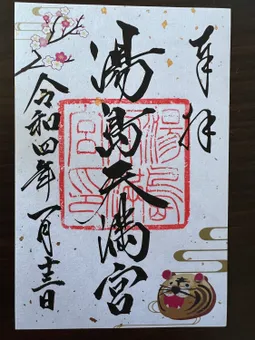 奉拝
湯島天満宮
令和四年一月十三日